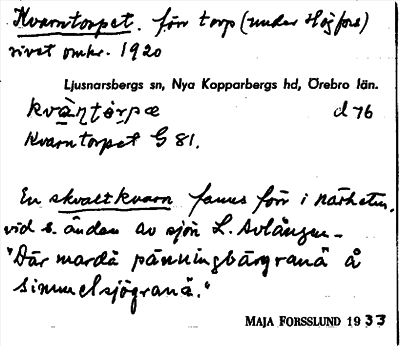 Kvarntorpet. förr torp (under Högfors)
rivet omkr. 1920
Ljusnarsbergs sn, Nya Kopparbergs hd, Örebro län.
kvàṇtò̱rpæ d 76
Kvarntorpet G 81.
En skvaltkvarn fanns förr i närheten,
vid s. änden av sjön L. Avlången –
"Där mardä pänningbärgranä å
Simmelsjögranä."
MAJA FORSSLUND 1933